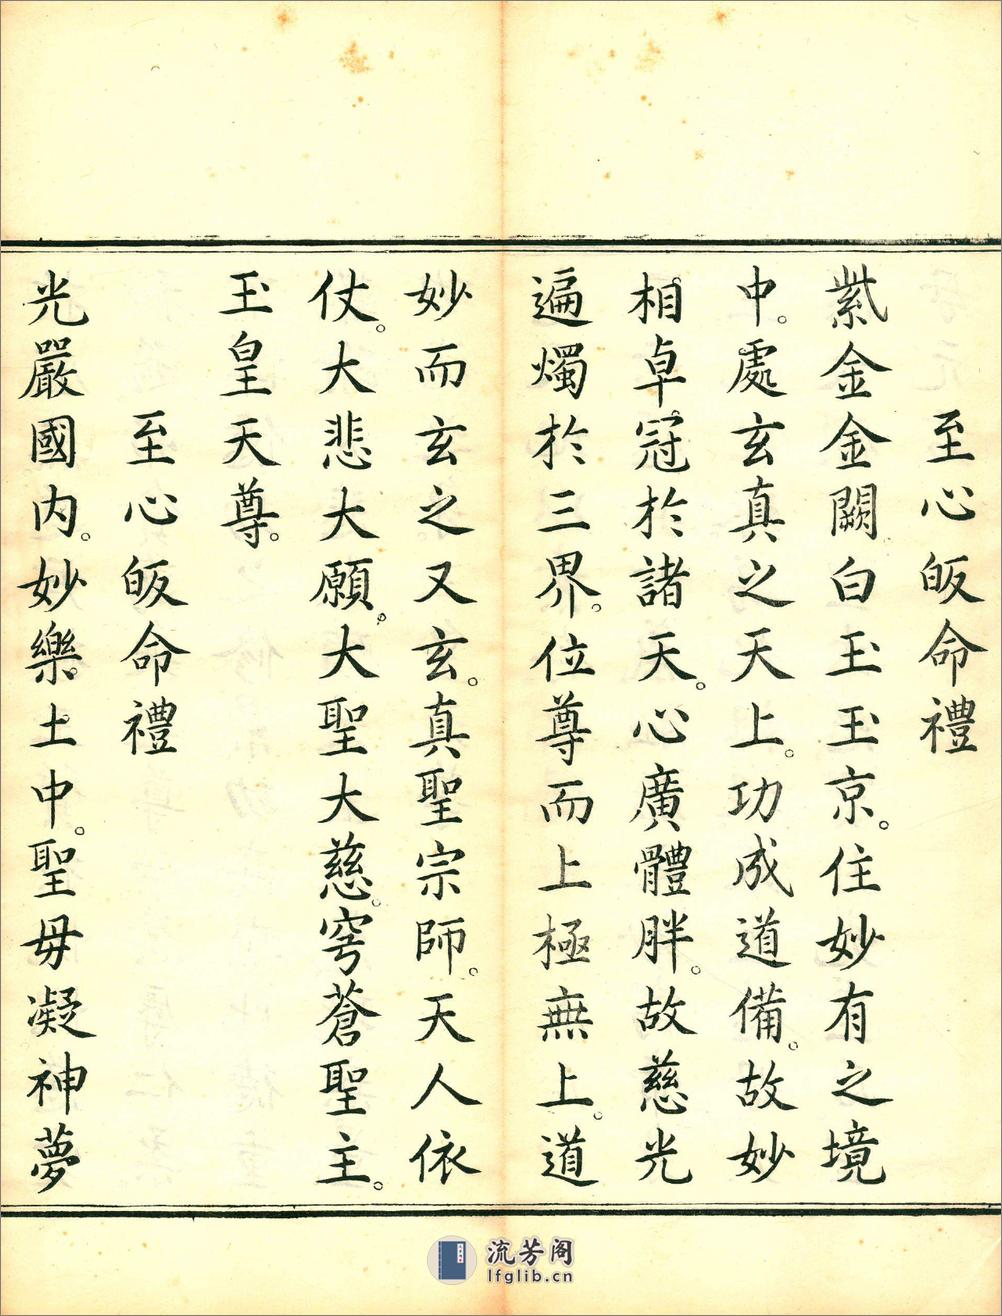 至心皈命禮
紫金金闕白玉玉京。住妙有之境
中。處玄真之天上。功成道備。故妙
相卓冠於諸天。心廣體胖。故慈光
遍燭於三界。位尊而上極無上。道
妙而玄之又玄。真聖宗師。天人依
仗。大悲大願。大聖大慈。穹蒼聖主。
玉皇天尊。
至心皈命禮
光嚴國內。妙樂土中。聖毋凝神夢
流芳阁
lfglib.cn